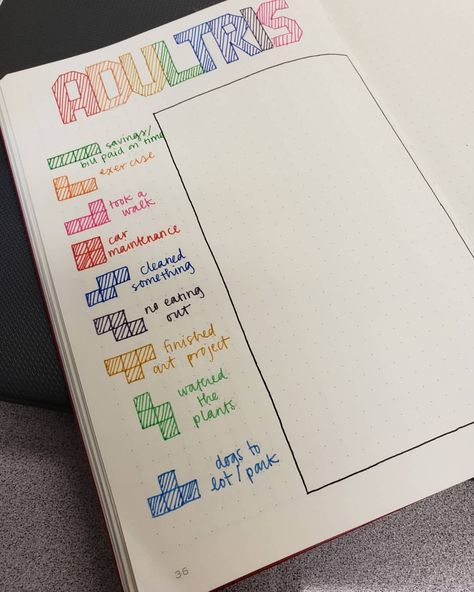 ADULTRIS
savings/
bill paid on time
exercise
took a
walk
car
maintenance
cleaned
something
no eating
out
finished
art project
watered
the
plants
dogs to
lot/park
36